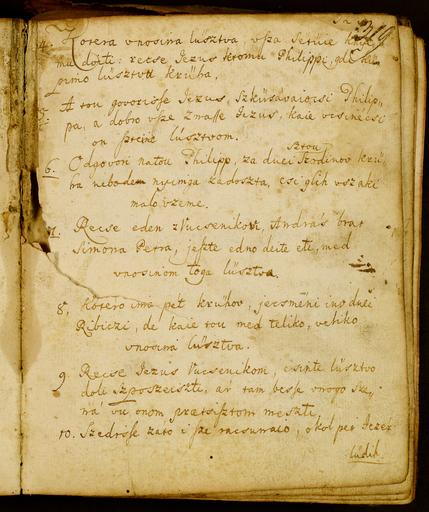 4. Kotera vnosina lusztva
mu doiti: recse Jezus k tomu Philippi, gde
pimo lusztvu krüha,
5. A tou govorose Jezus, Szküsavaiocsi Philip=
pa, a dobro vsze znase Jezus, kaie vcsinecsi
on lusztvom.
6. Odgovori natou Philipp, za duei sztou Szodinov krü=
ha nebodem nyimga zadoszta, csi glih vszaki
malo vzeme.
7. Recse eden zVucsenikov, András brat
Simona Petra, jeszte edno deite eti, med
vnosinom toga lüsztva.
8. Kotero ima pét krühov, jecsméni ino duei
Ribiczi, de kaie tou med teliko, veliko
vnosina lüsztva.
9. Recse Jezus Vucsenikom, lüsztvo
doli szposzeiszti, ar tam besse vnogo sze=
na vu onom meszti,
10. Szedrose zato i racsunaio, okol pét Jezer
lüdih.